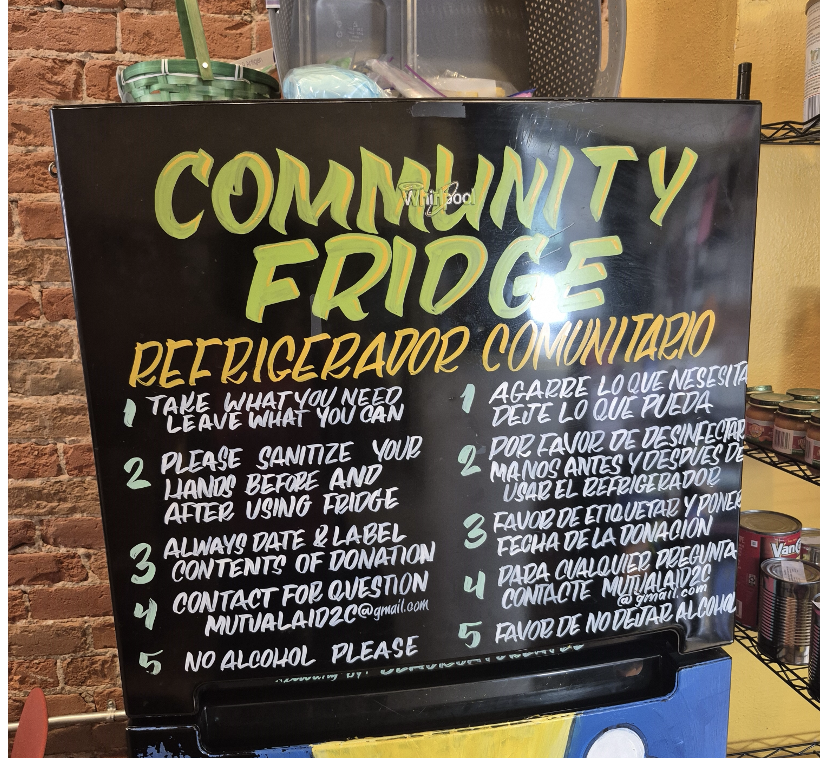 COMMUNITY
Whirlpool
FRIDGE
REFRIGERADOR COMUNITARIO
1 TAKE WHAT YOU NEED
LEAVE WHAT YOU CAN
2 PLEASE SANITIZE YOUR
HANDS BEFORE AND
AFTER USING FRIDGE
3 ALWAYS DATE & LABEL
CONTENTS OF DONATION
4 CONTACT FOR QUESTION
MUTUALAID2C@gmail.com
5 NO ALCOHOL PLEASE
1 AGARRE LO QUE NESESITA
DEJE LO QUE PUEDA
2 POR FAVOR DE DESINFECTAR
MANOS ANTES Y DESPUES DE
USAR EL REFRIGERADOR
3 FAVOR DE ETIQUETAR Y PONER
FECHA DE LA DONACIÓN
4 PARA CUALQUIER PREGUNTA
CONTACTE MUTUALAID2C
@gmail.com
5 FAVOR DE NO DEJAR ALCOHOL